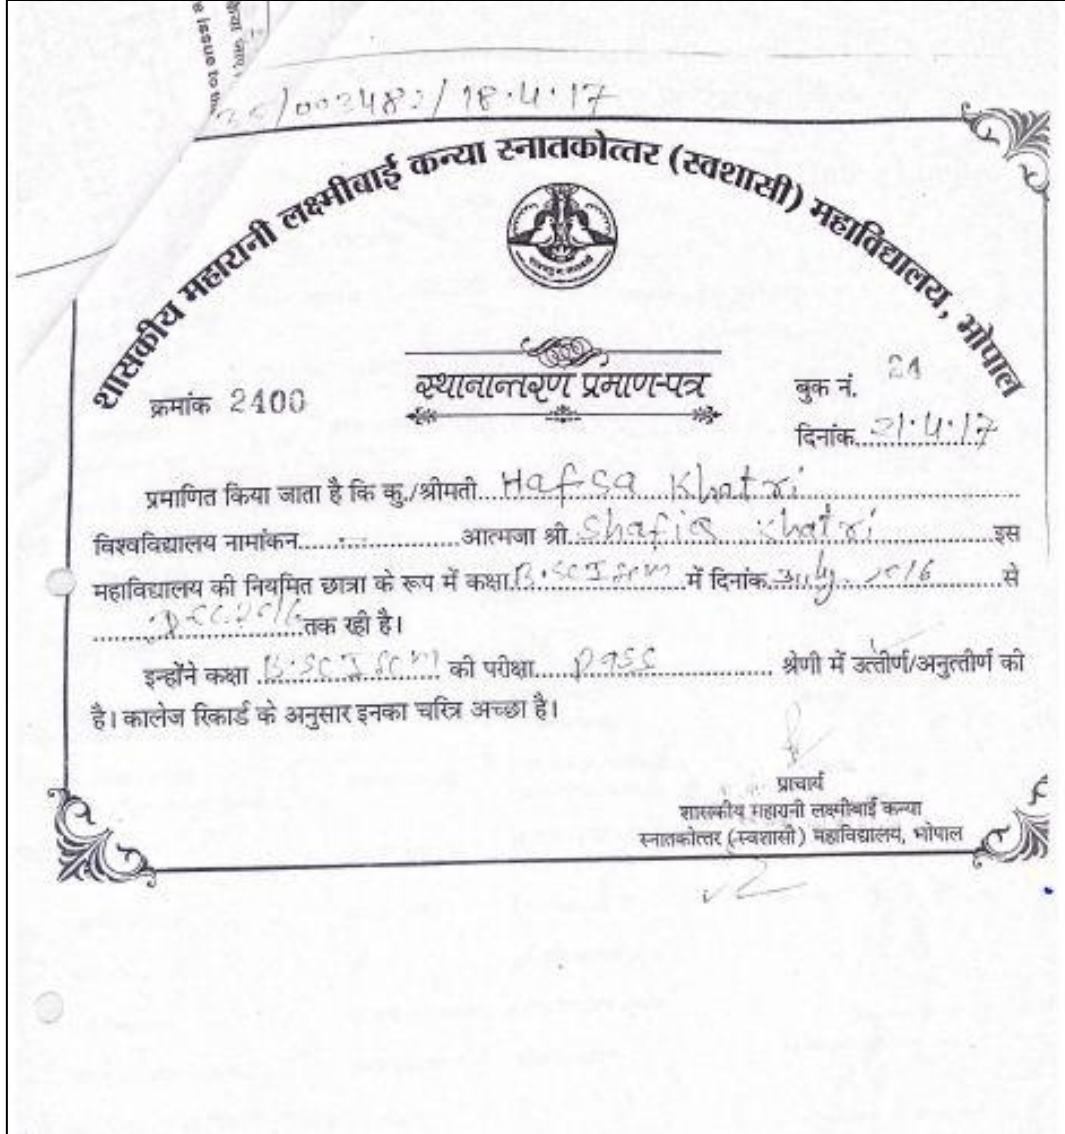 किया जाए।
e issue to the
35/003482/18.4.17
शासकीय महारानी लक्ष्मीबाई कन्या स्नातकोत्तर (स्वशासी) महाविद्यालय, भोपाल
क्रमांक 2400
स्थानान्तरण प्रमाण-पत्र
बुक नं. 24
दिनांक 21.4.17
प्रमाणित किया जाता है कि कु./श्रीमती Hafsa Khatri
विश्वविद्यालय नामांकन -- आत्मजा श्री Shafiq Khatri इस
महाविद्यालय की नियमित छात्रा के रूप में कक्षा B.Sc I Sem में दिनांक July 2016 से
Dec. 2016 तक रही है।
इन्होंने कक्षा B.Sc I Sem की परीक्षा pass श्रेणी में उत्तीर्ण/अनुत्तीर्ण की
है। कालेज रिकार्ड के अनुसार इनका चरित्र अच्छा है।
प्राचार्य
शासकीय महारानी लक्ष्मीबाई कन्या
स्नातकोत्तर (स्वशासी) महाविद्यालय, भोपाल